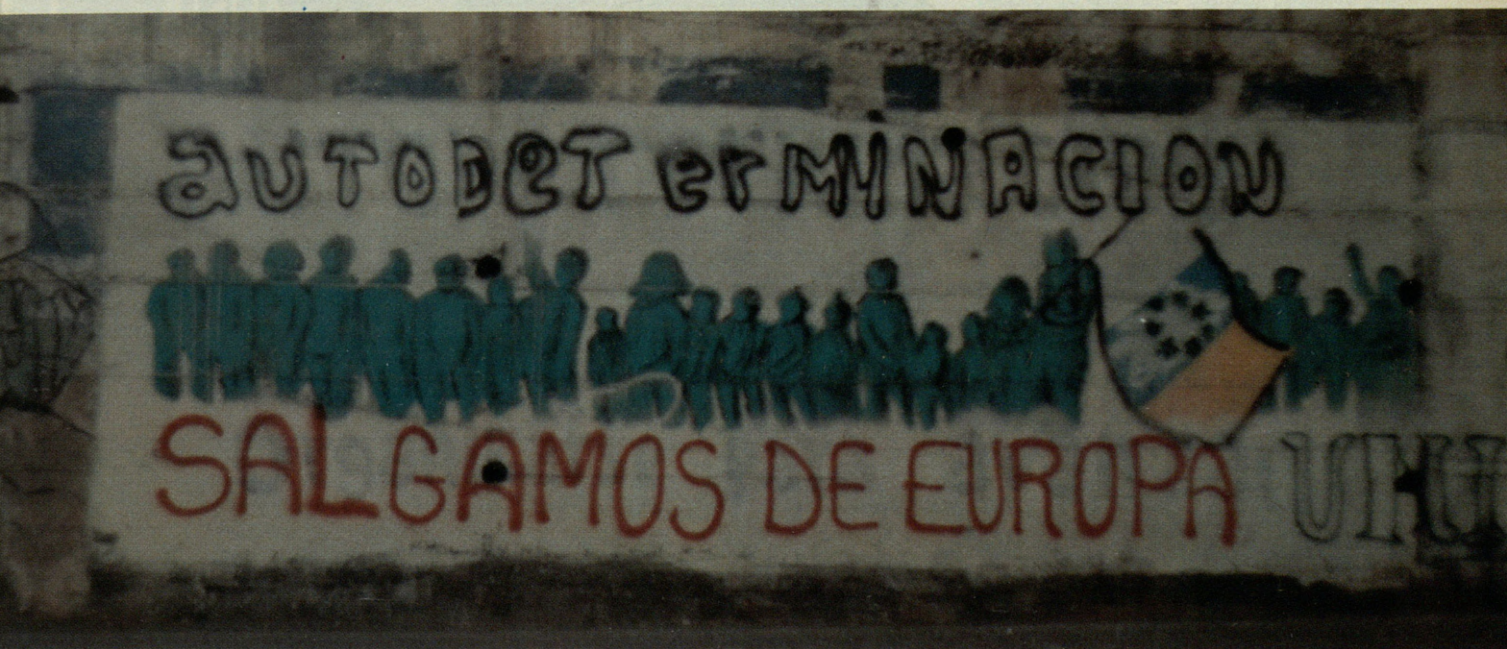 aUTODeT erMiNACION
SALGAMOS DE EUROPA